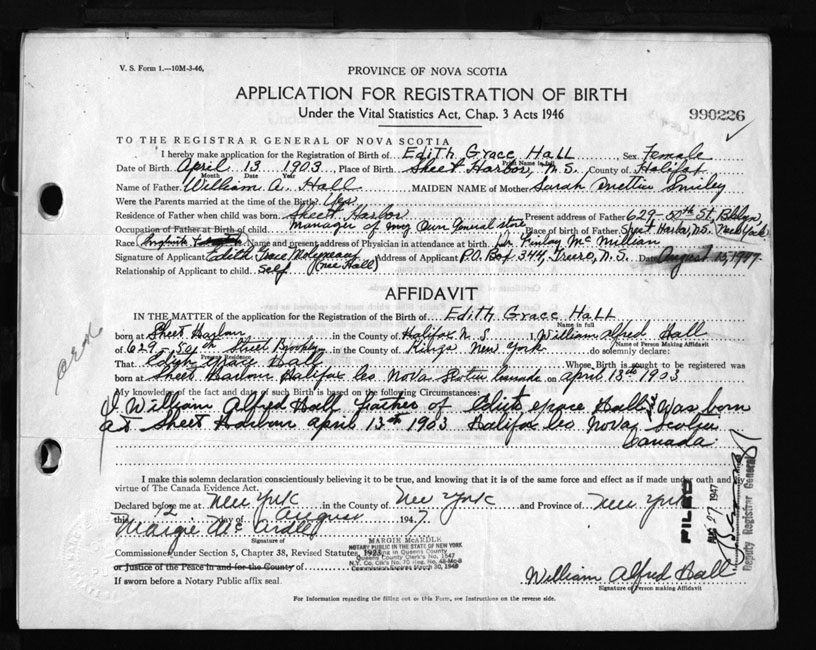 V. S. Form 1.—10M-3-46.
PROVINCE OF NOVA SCOTIA
APPLICATION FOR REGISTRATION OF BIRTH
Under the Vital Statistics Act, Chap. 3 Acts 1946
990226
TO THE REGISTRAR GENERAL OF NOVA SCOTIA
I hereby make application for the Registration of Birth of Edith Grace Hall Sex Female
Print Name in full
Date of Birth April 13 1903 Place of Birth Sheet Harbor, N.S. County of Halifax
Month Date Year
Name of Father William A. Hall MAIDEN NAME of Mother Sarah Smiley
Were the Parents married at the time of the Birth? Yes
Residence of Father when child was born Sheet Harbor Present address of Father 629-50th St, Bklyn,
Occupation of Father at Birth of child manager of my Own General store Place of Birth of Father Sheet Harbor, N.S. New York.
Race Name and present address of Physician in attendance at birth Dr. Finlay McMillian
Signature of Applicant Edith Grace Address of Applicant P.O. Box 344, Truro, N.S. Date August 15, 1947
Relationship of Applicant to child self (nee Hall)
AFFIDAVIT
IN THE MATTER of the application for the Registration of the Birth of Edith Grace Hall
Name in full
born at Sheet Harbour in the County of Halifax N.S. I, William Alfred Hall
Name of Person Making Affidavit
of 629 - 50th Street Brooklyn in the County of Kings New York do solemnly declare:
Present Residence
That Edith Grace Hall Whose Birth is sought to be registered was
born at Sheet Harbour Halifax Co Nova Scotia Canada on April 13th 1903
My knowledge of the fact and date of such Birth is based on the following Circumstances:
I William Alfred Hall father of Edith Grace Hall Was born
at Sheet Harbour April 13th 1903 Halifax Co Nova Scotia
Canada
I make this solemn declaration conscientiously believing it to be true, and knowing that it is of the same force and effect as if made under oath and by
virtue of The Canada Evidence Act.
Declared before me at New York in the County of New York and Province of New York
this 12 day of August 1947
Margie McArdle
Signature of
Commissioner under Section 5, Chapter 38, Revised Statutes, 1923,
or Justice of the Peace in and for the County of
If sworn before a Notary Public affix seal.
MARGIE McARDLE
NOTARY PUBLIC IN THE STATE OF NEW YORK
Residing in Queens County
Queens County Clerk's No. 1547
N.Y. Co. Clk's No. 70 Reg. No. 43-Mc-8
Commission Expires March 30, 1948
William Alfred Hall
Signature of Person making Affidavit
For Information regarding the filling out of this Form, see Instructions on the reverse side.
FILED
27 1947
Deputy Registrar General